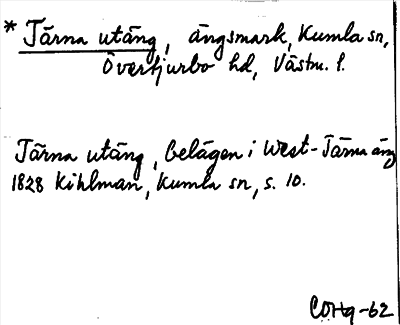 * Tärna utäng, ängsmark, Kumla sn,
Övertjurbo hd, Västm. l.
Tärna utäng, belägen i West-Tärna äng
1828 Kihlman, Kumla sn, s. 10.
COHg-62